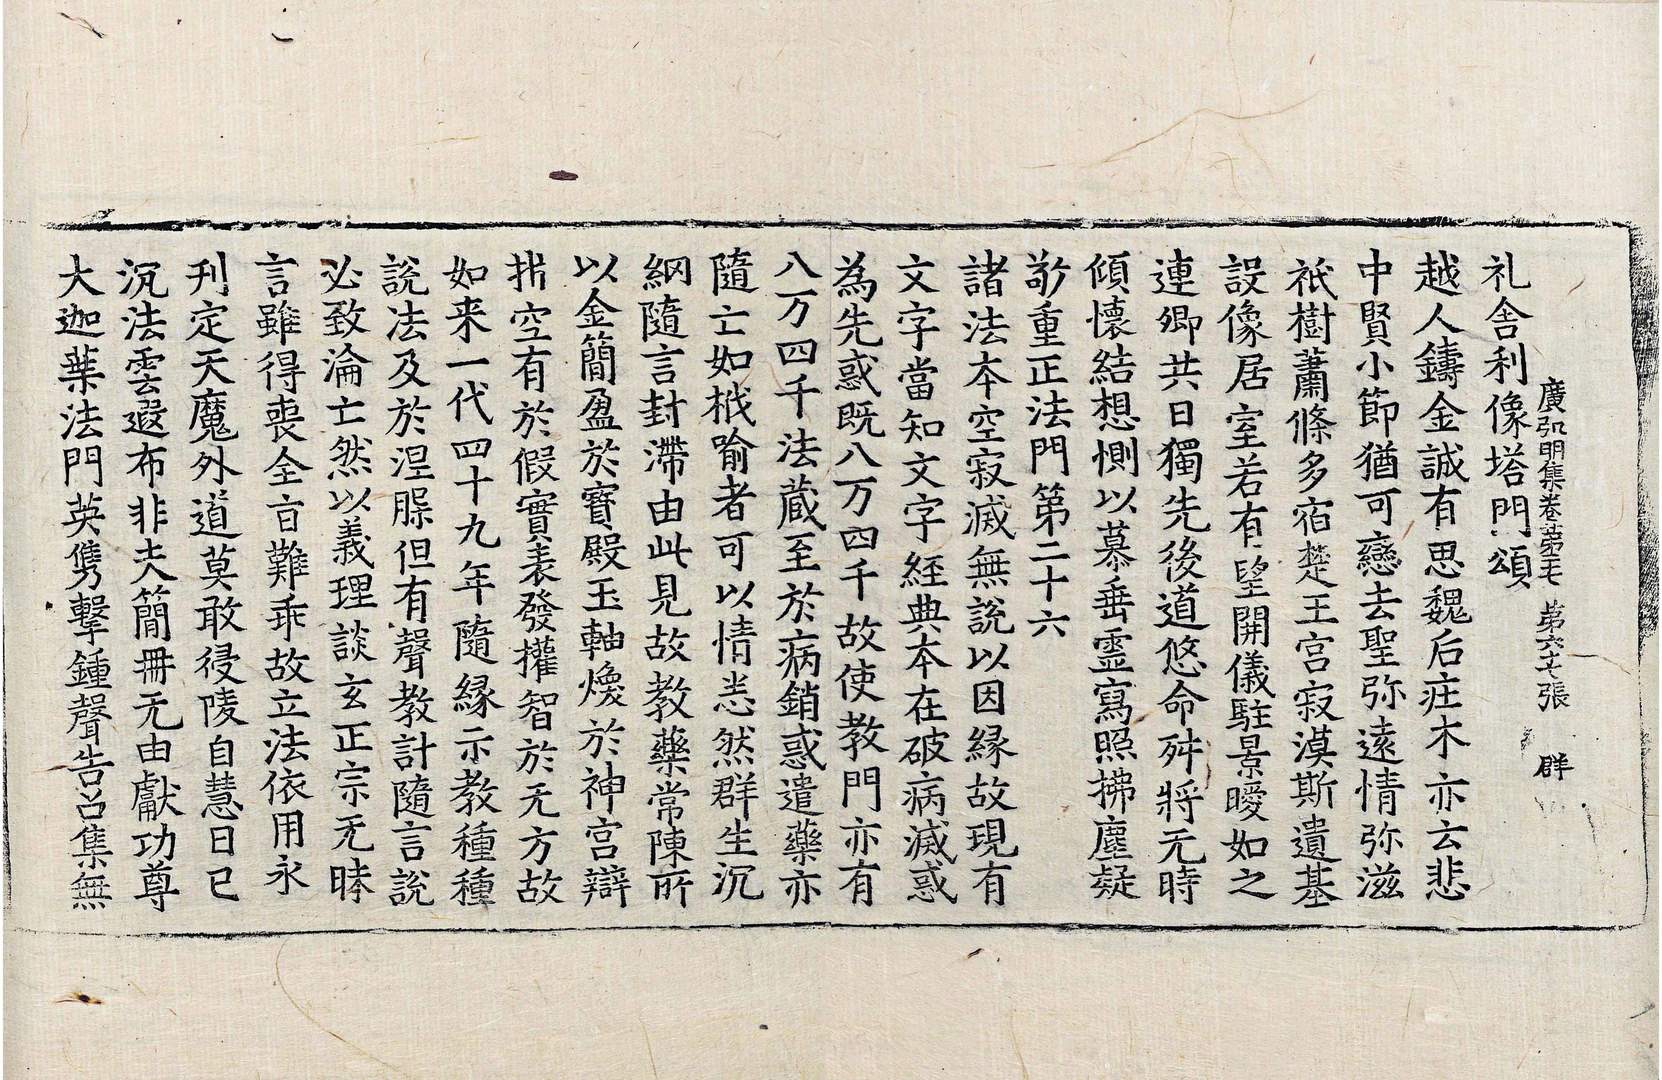 廣弘明集卷第二十七 第六十七張 群
礼舍利像塔門頌
越人鑄金誠有思魏后庄木亦云悲
中賢小節猶可戀去聖弥遠情弥滋
祇樹蕭條多宿楚王宮寂漠斯遺基
設像居室若有望開儀駐景曖如之
連卿共日獨先後道悠命舛將无時
傾懷結想惻以慕垂靈寫照拂塵疑
敬重正法門第二十六
諸法本空寂滅無說以因緣故現有
文字當知文字經典本在破病滅惑
為先惑既八万四千故使教門亦有
八万四千法蔵至於病銷惑遣藥亦
隨亡如栰喻者可以情恙然群生沉
網隨言封滯由此見故教藥常陳所
以金簡盈於寶殿玉軸煥於神宮辯
析空有於假實表發權智於无方故
如来一代四十九年隨緣示教種種
說法及於涅槃但有聲教計隨言說
必致淪亡然以義理談玄正宗无睹
言雖得喪全旨難乖故立法依用永
刊定天魔外道莫敢侵陵自慧日已
沉法雲遐布非夫簡冊无由獻功尊
大迦葉法門英雋擊鍾聲告召集無